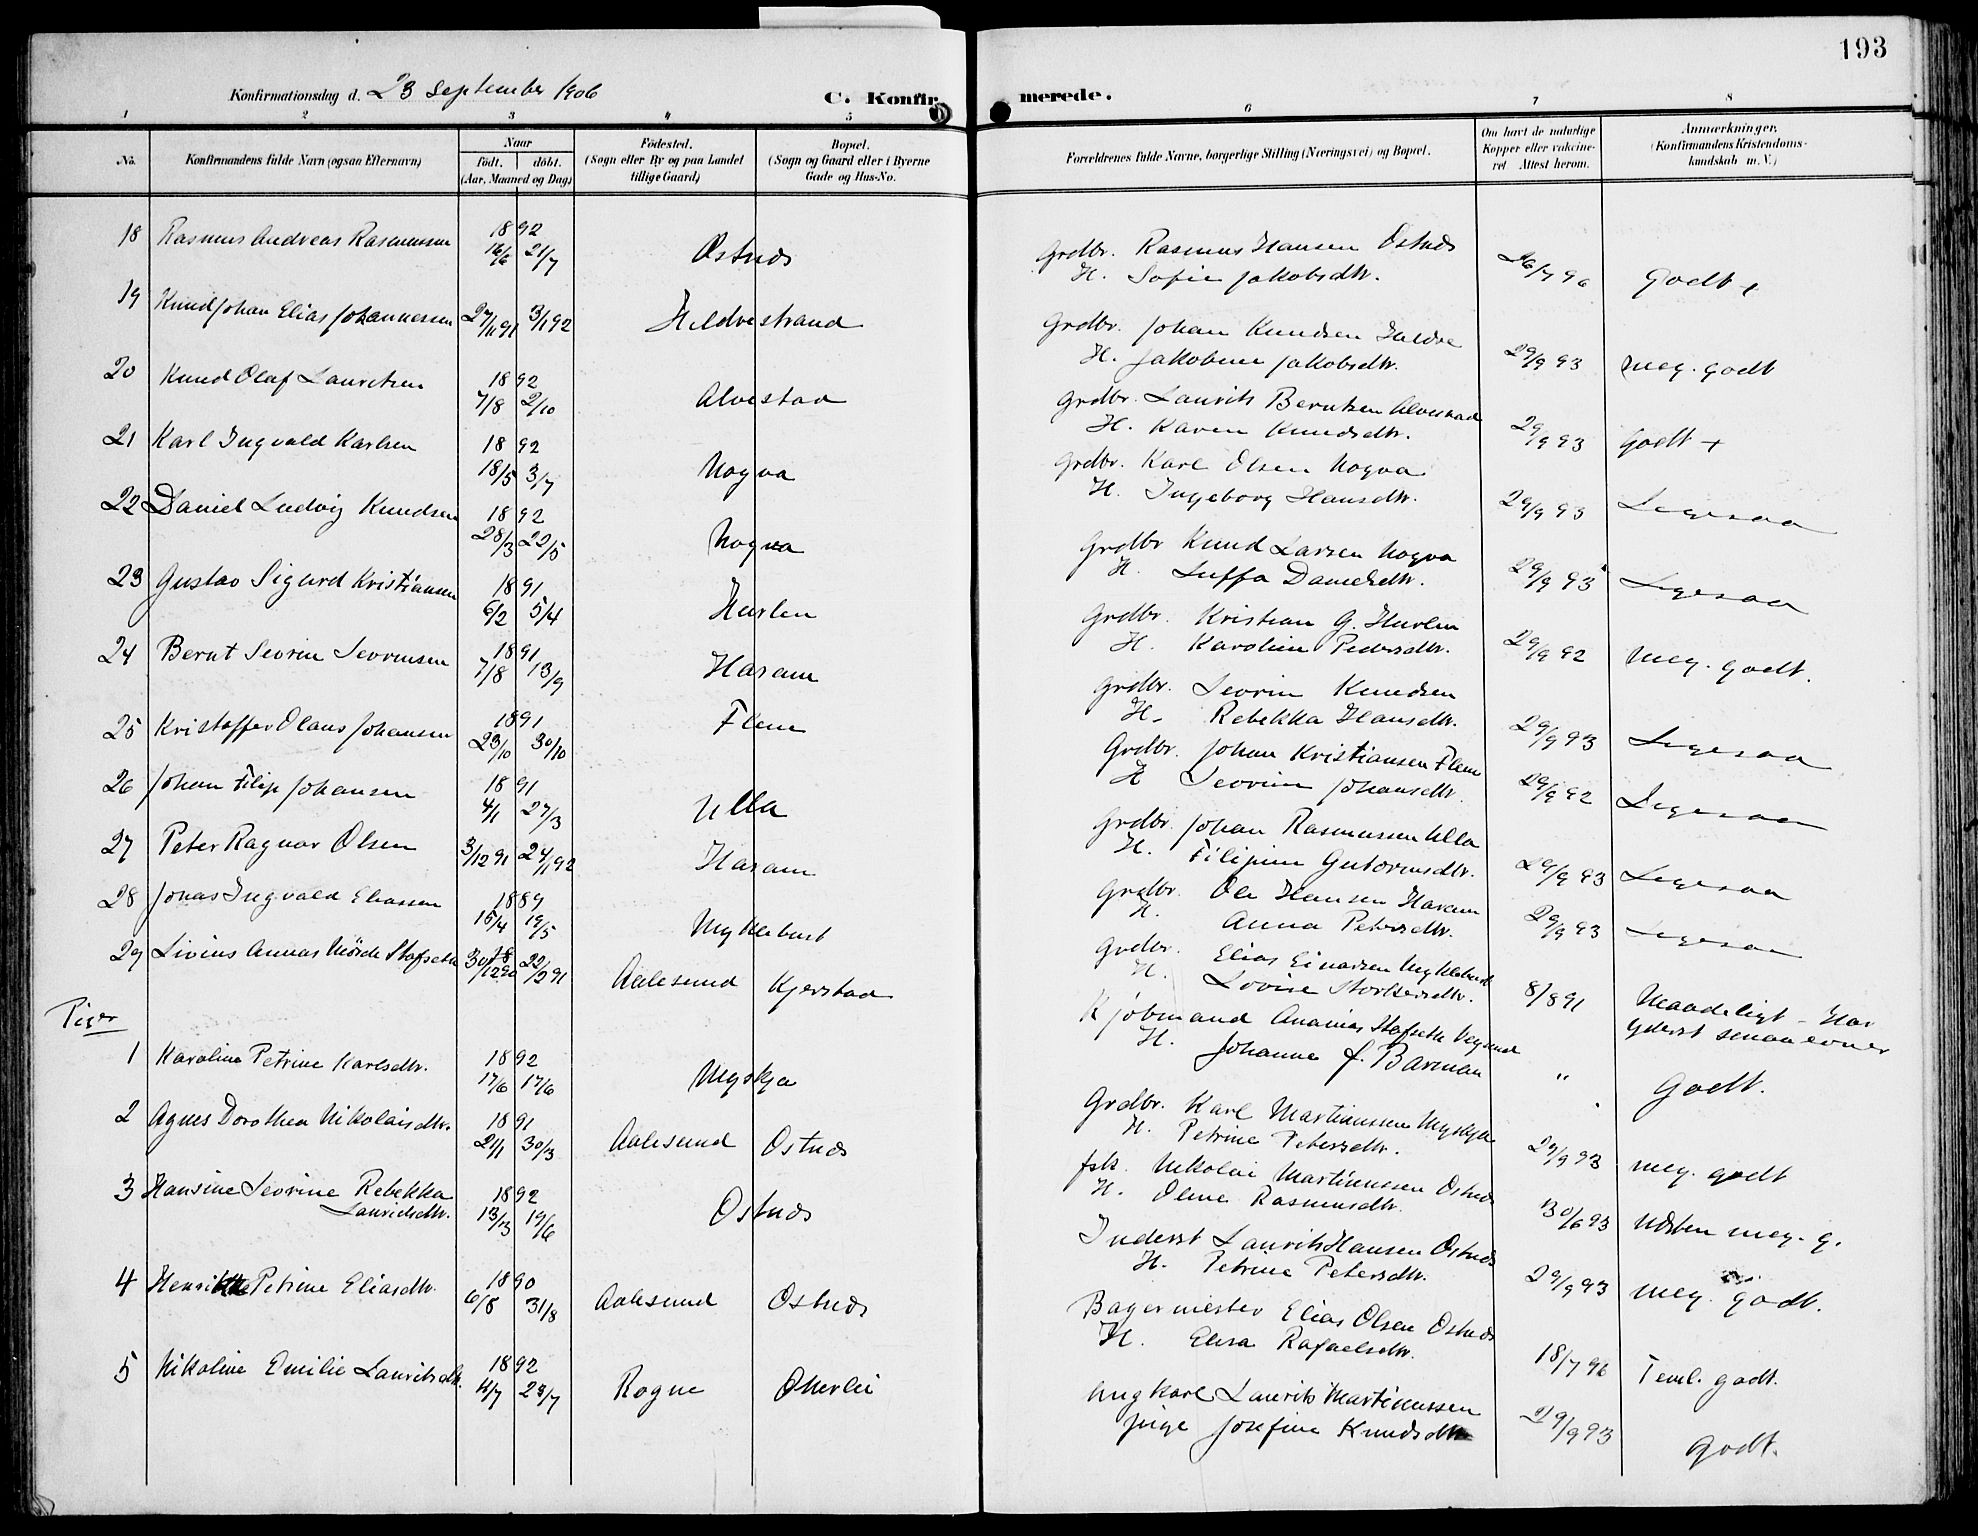 193
Konfirmationsdag d. 23 September 1906
C. Konfirmerede.
1 2 3 4 5 6 7 8
No. Konfirmandens fulde Navn (ogsaa Efternavn) Naar født. døbt. (Aar, Maaned og Dag) Fødested. (Sogn eller By og paa Landet tillige Gaard) Bopæl. (Sogn og Gaard eller i Byerne Gade og Hus-No. Forældrenes fulde Navne, borgerlige Stilling (Næringsvei) og Bopæl. Om havt de naturlige Kopper eller vaccineret Attest herom. Anmærkninger. (Konfirmandens Kristendomskundskab m. V.)
18 Rasmus Andreas Rasmussen 1892 16/6 21/7 Ostnes Grdbr. Rasmus Hansen Ostnes 26/7 96 Godt +
H. Sofie Jakobsdtr.
19 Knud Johan Elias Johannessen 27/11 91 3/1 92 Hildrestrand Grdbr. Johan Knudsen Hildre 29/9 93 Meg. godt
H. Jakobine Jakobsdtr.
20 Knud Olaf Lauritsen 1892 7/8 2/10 Alvestad Grdbr. Laurits Berntsen Alvestad 29/9 93 Godt +
H. Karen Knudsdtr.
21 Karl Ingvald Karlsen 1892 18/5 3/7 Nogva Grdbr. Karl Olsen Nogva 29/9 93 Ligesaa
H. Ingeborg Hansdtr.
22 Daniel Ludvig Knudsen 1892 28/3 22/5 Nogva Grdbr Knud Larsen Nogva 29/9 93 Ligesaa
H. Luffa Danielsdtr.
23 Gustav Sigurd Kristiansen 1891 6/2 5/4 Hurlen Grdbr. Kristian G. Hurlen 29/9 92 Meg. godt.
H. Karoline Pedersdtr.
24 Bernt Sevrin Sevrinsen 1891 7/8 13/9 Haram Grdbr. Sevrin Knudsen 29/9 93 Ligesaa
H. Rebekka Hansdtr.
25 Kristoffer Olaus Johansen 1891 23/10 30/10 Flem Grdbr. Johan Kristiansen Flem 29/9 92 Ligesaa
H Sevrine Johansdtr.
26 Johan Filip Johansen 1891 4/1 27/3 Ulla Grdbr. Johan Rasmussen Ulla 29/9 93 Ligesaa
H. Filipine Gutormsdtr.
27 Peter Ragnar Olsen 3/12 91 24/1 92 Haram Grdbr. Ole Hansen Haram 29/9 93 Ligesaa
H. Anna Petersdtr.
28 Jonas Ingvald Eliassen 1889 15/4 19/5 Myklebust Grdbr. Elias Einarsen Myklebust 8/8 91 Maadeligt - Har
H. Lovise Storkersdtr. yderst smaa evner
29 Livius Annas Mørch Stafseth 30/12 90 22/2 91 Aalesund Kjerstad Kjøbmand Ananias Stafseth Vegsund " Godt.
H. Johanne f. Barman
Piger
1 Karoline Petrine Karlsdtr. 1892 17/6 17/6 Myskja Grdbr. Karl Martinussen Myskja 29/9 93 Meg. godt
H. Petrine Petersdtr.
2 Agnes Dorothea Nikolaisdtr. 1891 21/1 30/3 Aalesund Ostnes fsk. Nikolai Martinussen Ostnes 30/6 93 Næsten meg. g.
H. Oline Rasmusdtr.
3 Hansine Sevrine Rebekka 1892 13/3 19/6 Ostnes Inderst Laurits Hansen Ostnes 29/9 93 Meg. godt.
Lauritsdtr. H. Petrine Petersdtr.
4 Henrikke Petrine Eliasdtr. 1890 6/8 31/8 Aalesund Ostnes Bagermester Elias Olsen Ostnes 18/7 96 Teml. godt.
H. Elisa Rafaelsdtr.
5 Nikoline Emilie Lauritsdtr. 1892 4/7 23/7 Rogne Otterlei Ungkarl Laurits Martinussen 29/9 93 Godt.
Pige Josefine Knudsdtr